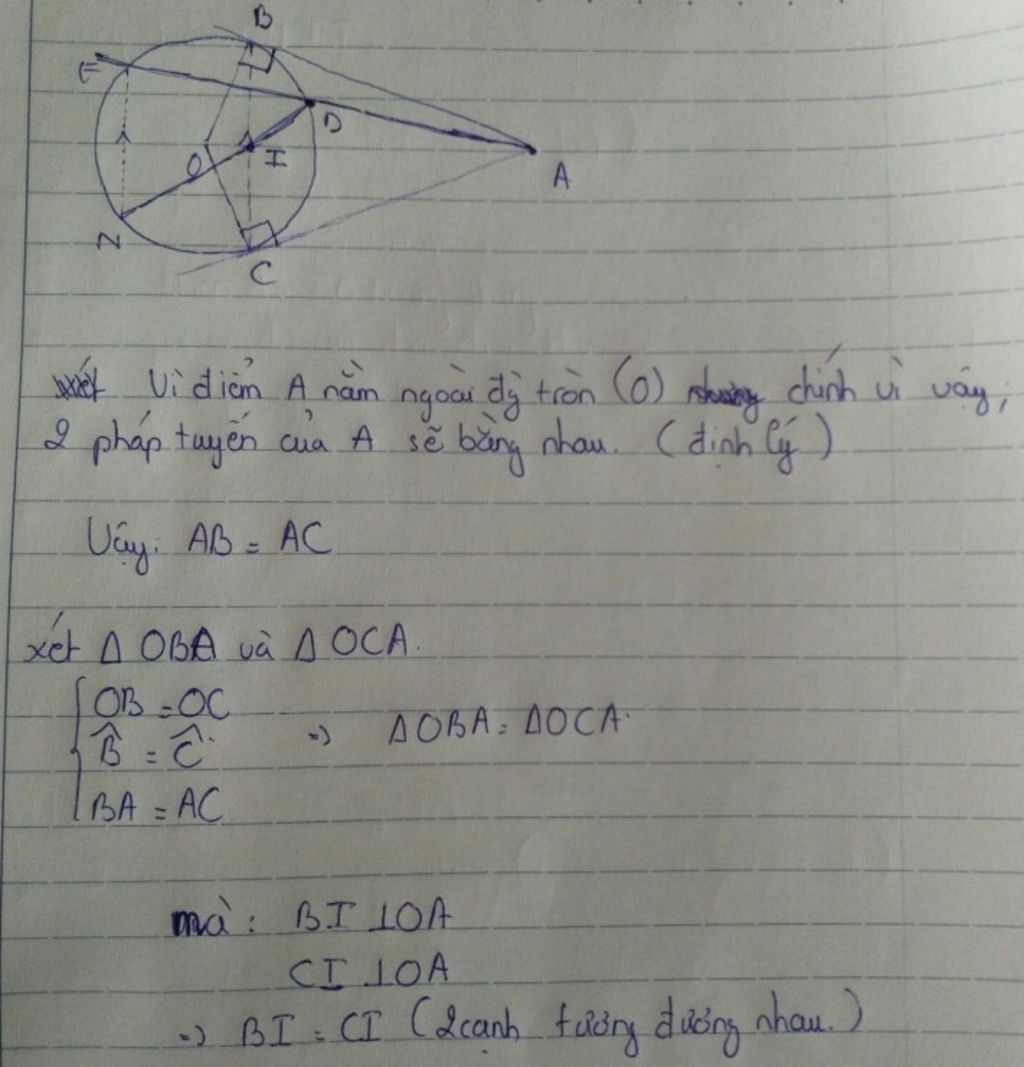 B
E
D
O
I
A
N
C
Vì điểm A nằm ngoài đg tròn (O) chính vì vậy;
2 pháp tuyến của A sẽ bằng nhau. (định lý)
Vậy: AB = AC
xét Δ OBA và Δ OCA.
OB = OC
B̂ = Ĉ => ΔOBA = ΔOCA.
BA = AC
mà: BI ⊥ OA
CI ⊥ OA
=> BI = CI (2 cạnh tương đương nhau.)